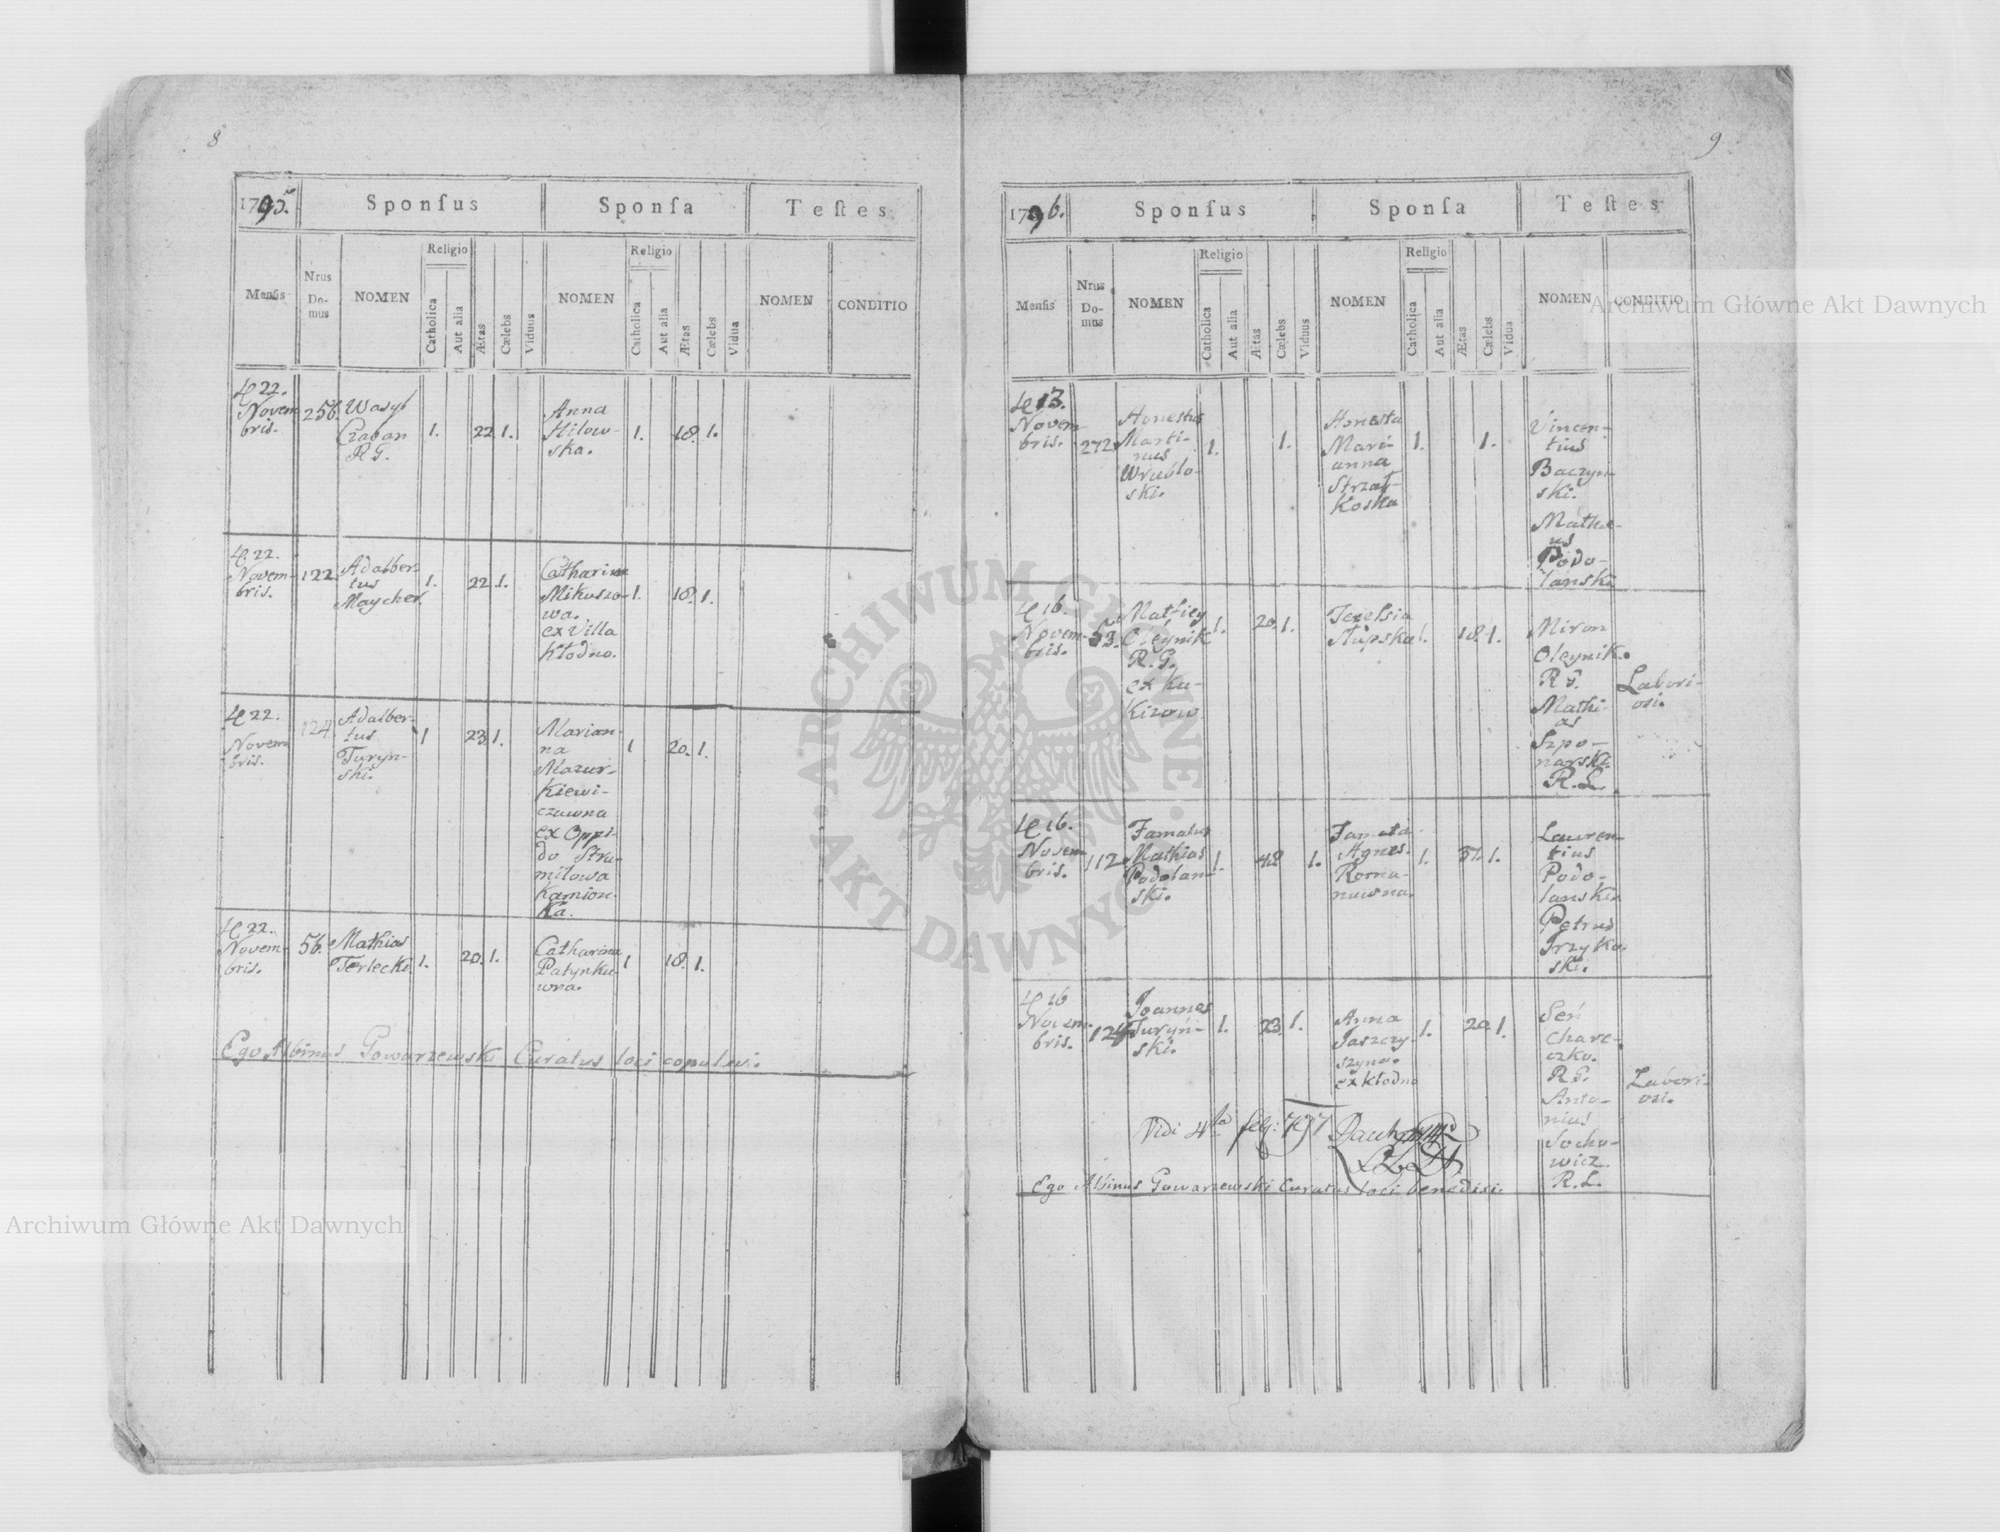 8
1795.
Sponſus
Sponſa
Teſtes
Menſis
Nrus
Do-
mus
NOMEN
Religio
Catholica
Aut alia
Ætas
Cælebs
Viduus
NOMEN
Religio
Catholica
Aut alia
Ætas
Cælebs
Vidua
NOMEN
CONDITIO
22.
Novem
bris.
256.
Wasyl
Czaban
R G.
1.
22
1.
Anna
Hilow-
ska.
1.
18.
1.
22.
Novem-
bris.
122.
Adalber-
tus
Maycher.
1.
22
1.
Catharina
Mikuszo-
wa.
ex Villa
Kłodno.
1.
18.
1.
22.
Novem
bris.
124.
Adalber-
tus
Turyn-
ski.
1
23
1.
Marian-
na
Mazur-
kiewi-
czawna
ex Oppi-
do Stru-
milowa
Kamion-
ka.
1
20.
1.
22.
Novem-
bris.
56.
Mathias
Terlecki
1.
20.
1.
Catharina
Patynku-
wna.
1
18.
1.
Ego Albinus Gowarzewski Curatus loci copulavi.
9
1796.
Sponſus
Sponſa
Teſtes
Menſis
Nrus
Do-
mus
NOMEN
Religio
Catholica
Aut alia
Ætas
Cælebs
Viduus
NOMEN
Religio
Catholica
Aut alia
Ætas
Cælebs
Vidua
NOMEN
CONDITIO
13.
Novem-
bris.
272.
Honestus
Marti-
nus
Wrublo-
ski.
1.
1.
Honesta
Mari-
anna
Strzał-
koska
1.
1.
Vincen-
tius
Baczyn-
ski.
Mathe-
us
Podo-
lanski
16.
Novem-
bris.
53.
Matfiey
Oleynik
R. G.
ex Ku-
kizow
1.
20.
1.
Słupska
1.
18.
1.
Miron
Oleynik.
R G.
Mathi-
as
Szpo-
narski.
R. L.
Labori-
osi.
16.
Novem-
bris.
112.
Famatus
Mathias
Podolan-
ski.
1.
42
1.
Famata
Agnes.
Roma-
nuwna.
1.
1.
Lauren-
tius
Podo-
lanski.
Petrus
Trzyko-
ski.
16
Novem-
bris.
124.
Joannes
Turyń-
ski.
1.
23.
1.
Anna
Jaszczy-
szyna.
ex Kłodno
1.
20.
1.
Señ
Charc-
czko.
R G.
Anto-
nius
Socho-
wicz.
R. L.
Labori-
osi.
Vidi 4ta febr: 797
Ego Albinus Gowarzewski Curatus loci benedixi.
Archiwum Główne Akt Dawnych
Archiwum Główne Akt Dawnych
ARCHIWUM GŁÓWNE
AKT DAWNYCH